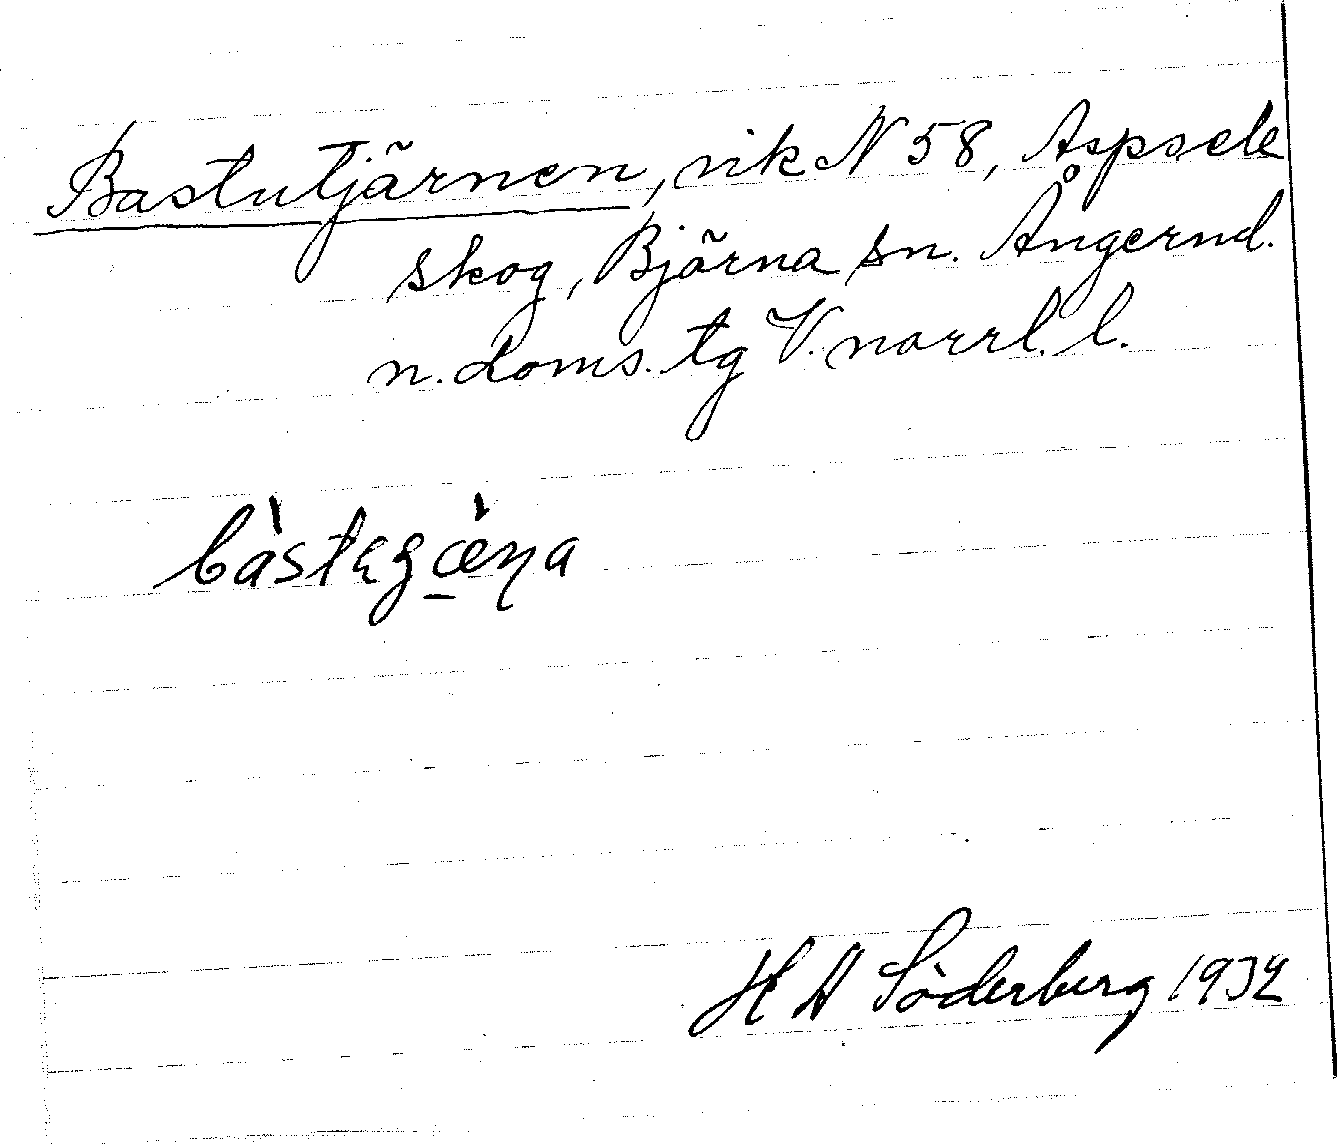 Bastutjärnen, vik N 58, Aspsele
skog, Björna sn. Ångernd.
n. doms. tg V. norrl. l.
bàstegæ̀ŋa
H A Söderberg 1932